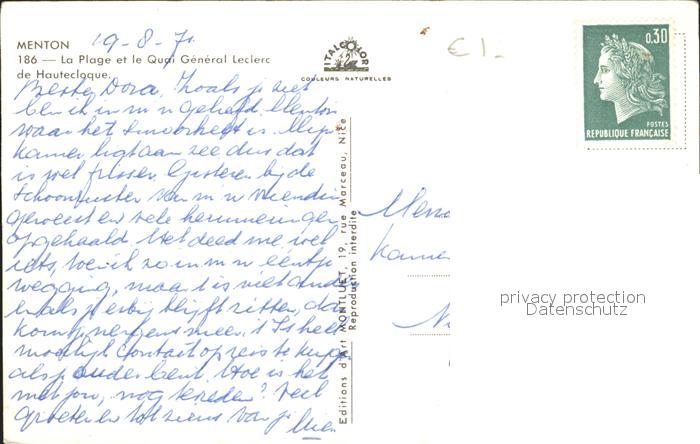 MENTON 19-8-71
186 — La Plage et le Quai Général Leclerc
de Hauteclocque.
Beste Dora, Zoals je ziet
ben ik in m'n geliefd Menton
waar het smoorheet is. Mijn
kamer ligt aan zee dus dat
is wel frisser. Gisteren bij de
schoonzuster van m'n vriendin
geweest en vele herinneringen
opgehaald. Het deed me wel
iets, toen ik zo in m'n eentje
wegging, maar 't is niet anders
en als je erbij blijft zitten, dan
kom je nergens meer. 't Is heel
moeilijk contact op reis te krijgen
als je ouder bent. Hoe is het
met jou, nog tevreden? Veel
groeten en tot ziens van je
ITALCOLOR
COULEURS NATURELLES
Editions d'Art MONTLUET, 19, rue Marceau, Nice
Reproduction interdite
€ 1-
0,30
POSTES
REPUBLIQUE FRANÇAISE
privacy protection
Datenschutz